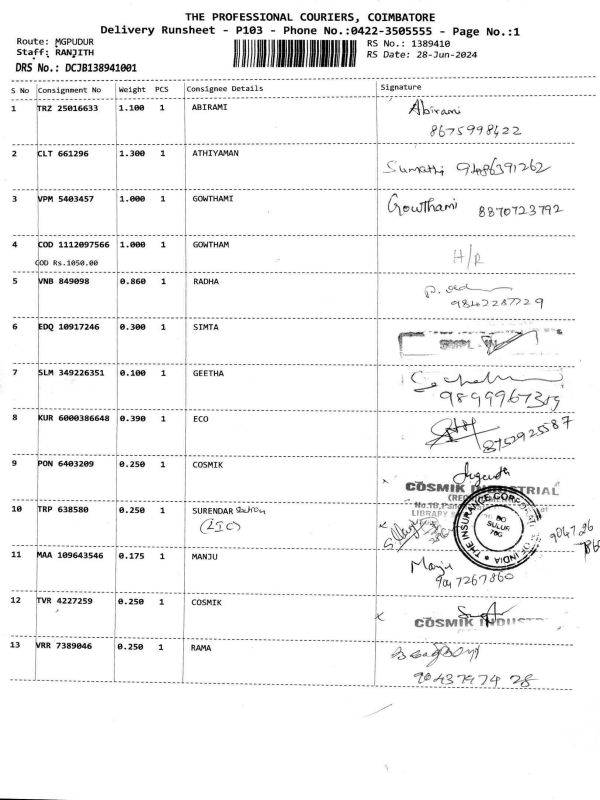 THE PROFESSIONAL COURIERS, COIMBATORE
Delivery Runsheet - P103 - Phone No.:0422-3505555 - Page No.:1
Route: MGPUDUR
RS No.: 1389410
Staff: RANJITH
RS Date: 28-Jun-2024
DRS No.: DCJB138941001
S No Consignment No Weight PCS Consignee Details Signature
1 TRZ 25016633 1.100 1 ABIRAMI Abirami
8675998422
2 CLT 661296 1.300 1 ATHIYAMAN Sumathi 9486391262
3 VPM 5403457 1.000 1 GOWTHAMI Gowthami 8870723792
4 COD 1112097566 1.000 1 GOWTHAM H/R
COD Rs.1050.00
5 VNB 849098 0.860 1 RADHA
9842287729
6 EDQ 10917246 0.300 1 SIMTA
7 SLM 349226351 0.100 1 GEETHA
8 KUR 6000386648 0.390 1 ECO 8752925587
9 PON 6403209 0.250 1 COSMIK
COSMIK INDUSTRIAL
10 TRP 638580 0.250 1 SURENDAR
(LIC)
LIBRARY
THE INSURANCE CORPORATION OF INDIA
BO
SULUR
11 MAA 109643546 0.175 1 MANJU Manju
9047267860
12 TVR 4227259 0.250 1 COSMIK
COSMIK INDUST
13 VRR 7389046 0.250 1 RAMA
9043797428